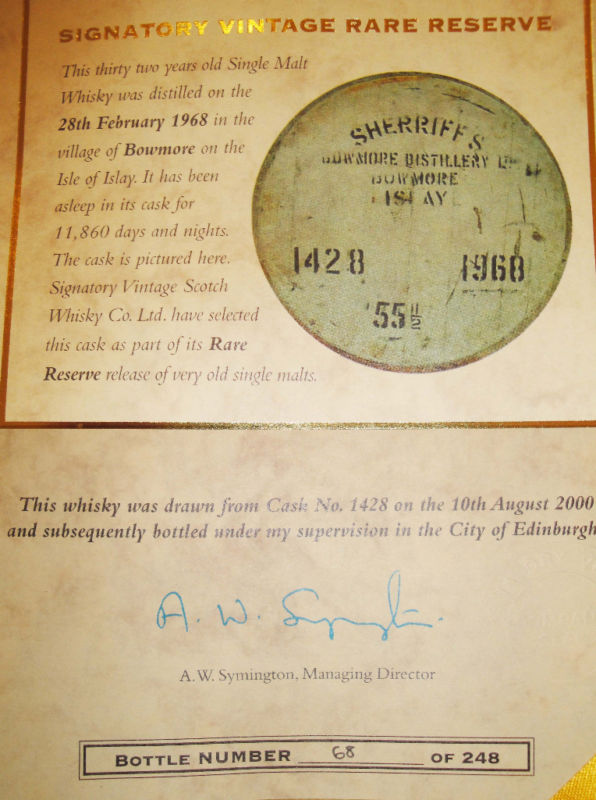 SIGNATORY VINTAGE RARE RESERVE
This thirty two years old Single Malt
Whisky was distilled on the
28th February 1968 in the
village of Bowmore on the
Isle of Islay. It has been
asleep in its cask for
11,860 days and nights.
The cask is pictured here.
Signatory Vintage Scotch
Whisky Co. Ltd. have selected
this cask as part of its Rare
Reserve release of very old single malts.
SHERRIFF'S
BOWMORE DISTILLERY
BOWMORE
ISLAY
1428 1968
55
This whisky was drawn from Cask No. 1428 on the 10th August 2000
and subsequently bottled under my supervision in the City of Edinburgh
A. W. Symington.
A.W. Symington, Managing Director
BOTTLE NUMBER 68 OF 248